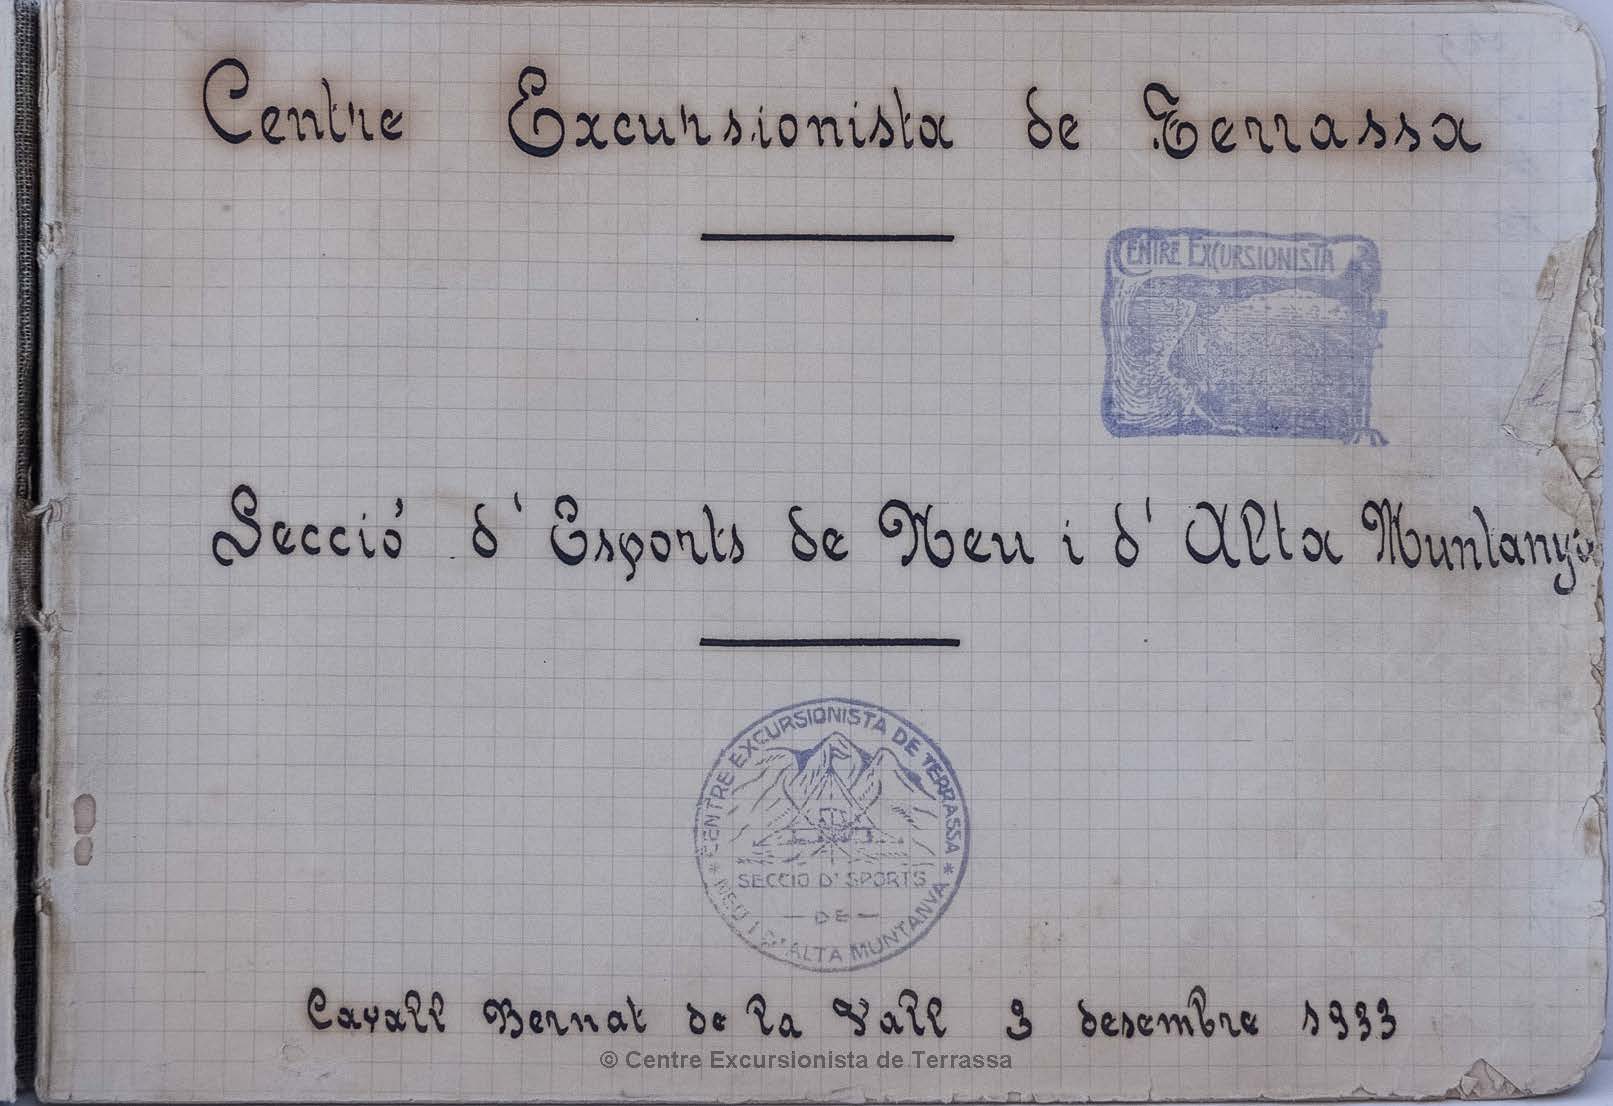 Centre Excursionista de Terrassa
CENTRE EXCURSIONISTA
Secció d'Esports de Neu i d'Alta Muntanya
CENTRE EXCURSIONISTA DE TERRASSA
SECCIO D'SPORTS
— DE —
* NEU I D'ALTA MUNTANYA *
Cavall Bernat de la Vall 3 desembre 1933
© Centre Excursionista de Terrassa